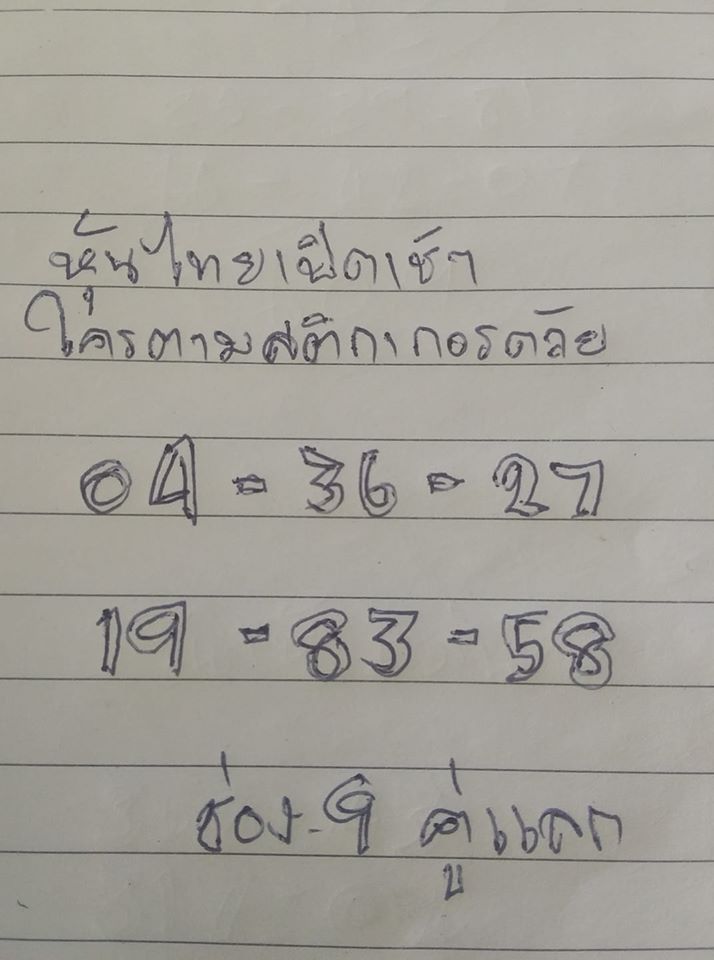 หุ้นไทยเปิดเช้า
ใครตามสติกเกอรด้วย
04 - 36 - 27
19 - 83 - 58
ช่อง-9 คู่แลก